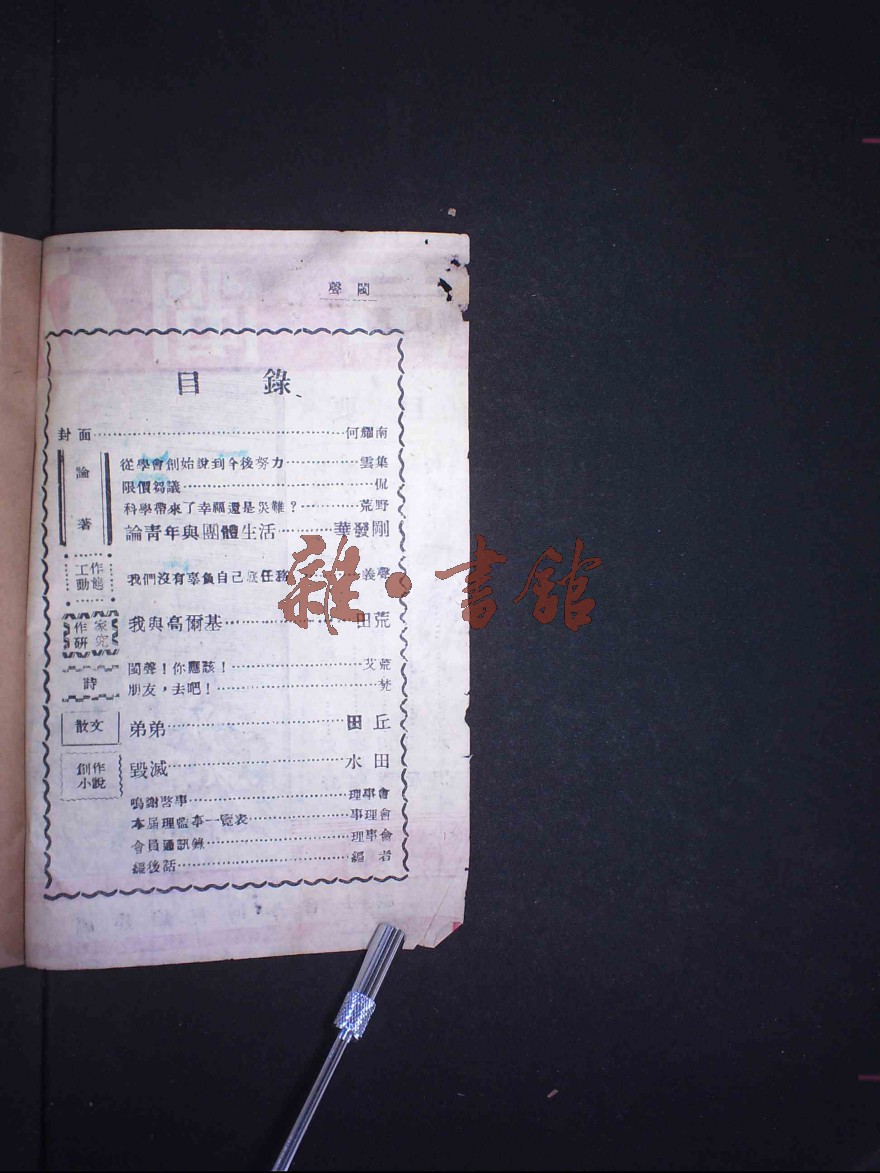 聲閩
目錄
封面……何耀南
論著
從學會創始說到今後努力……雲集
限價芻議……侃
科學帶來了幸福還是災難？……荒野
論青年與團體生活……華發剛
工作動態
我們沒有辜負自己底任務……義聲
作家研究
我與高爾基……田荒
詩
閩聲！你應該！……艾荒
朋友，去吧！……
散文
弟弟……田丘
創作小說
毀滅……水田
鳴謝啓事……理事會
本屆理監事一覽表……事理會
會員通訊錄……理事會
編後話……編者
雜·書館